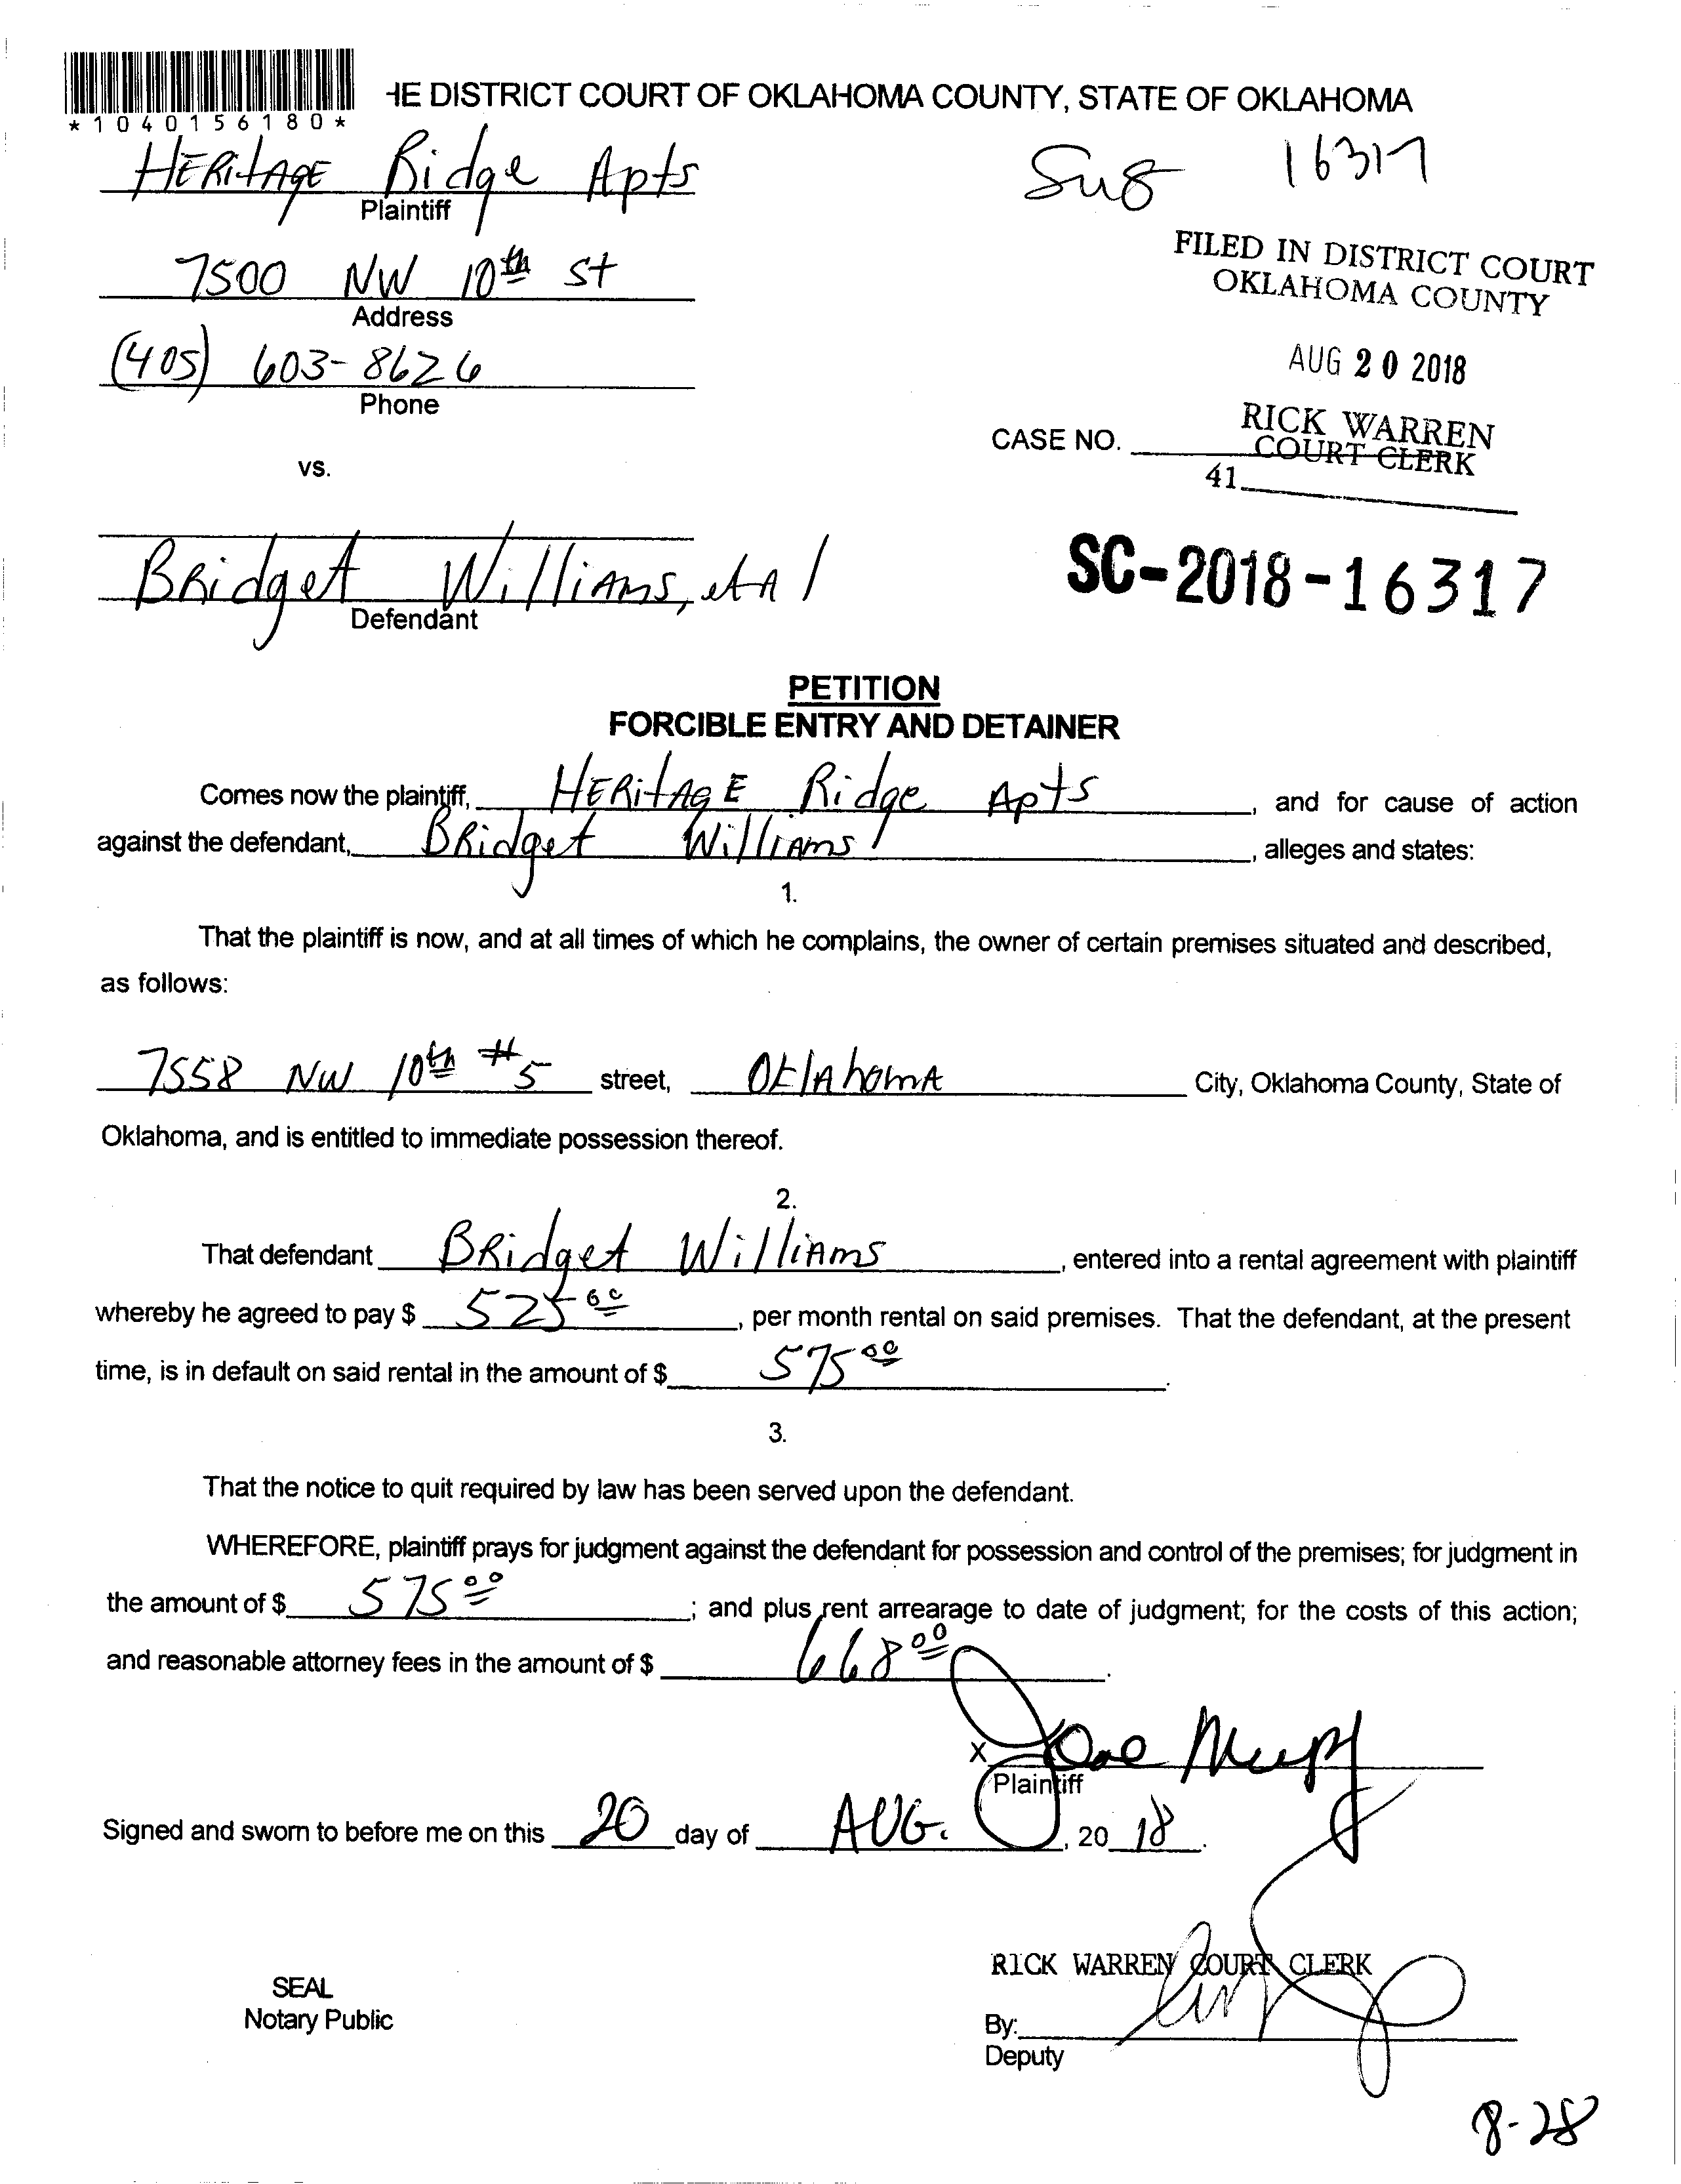 *1040156180*
HE DISTRICT COURT OF OKLAHOMA COUNTY, STATE OF OKLAHOMA
HERitAGE Ridge Apts
Plaintiff
16317
7500 NW 10th St
Address
(405) 603-8626
Phone
FILED IN DISTRICT COURT
OKLAHOMA COUNTY
AUG 20 2018
RICK WARREN
COURT CLERK
41
CASE NO.
vs.
Bridget Williams, et Al
Defendant
SC-2018-16317
PETITION
FORCIBLE ENTRY AND DETAINER
Comes now the plaintiff, HERitAGE Ridge Apts, and for cause of action
against the defendant, Bridget Williams, alleges and states:
1.
That the plaintiff is now, and at all times of which he complains, the owner of certain premises situated and described,
as follows:
7558 NW 10th #5 street, Oklahoma City, Oklahoma County, State of
Oklahoma, and is entitled to immediate possession thereof.
2.
That defendant Bridget Williams, entered into a rental agreement with plaintiff
whereby he agreed to pay $ 525 00, per month rental on said premises. That the defendant, at the present
time, is in default on said rental in the amount of $ 575 00.
3.
That the notice to quit required by law has been served upon the defendant.
WHEREFORE, plaintiff prays for judgment against the defendant for possession and control of the premises; for judgment in
the amount of $ 575 00; and plus rent arrearage to date of judgment; for the costs of this action;
and reasonable attorney fees in the amount of $ 668 00.
X
Plaintiff
Signed and sworn to before me on this 20 day of AUG., 20 18.
SEAL
Notary Public
RICK WARREN COURT CLERK
By:
Deputy
8-28